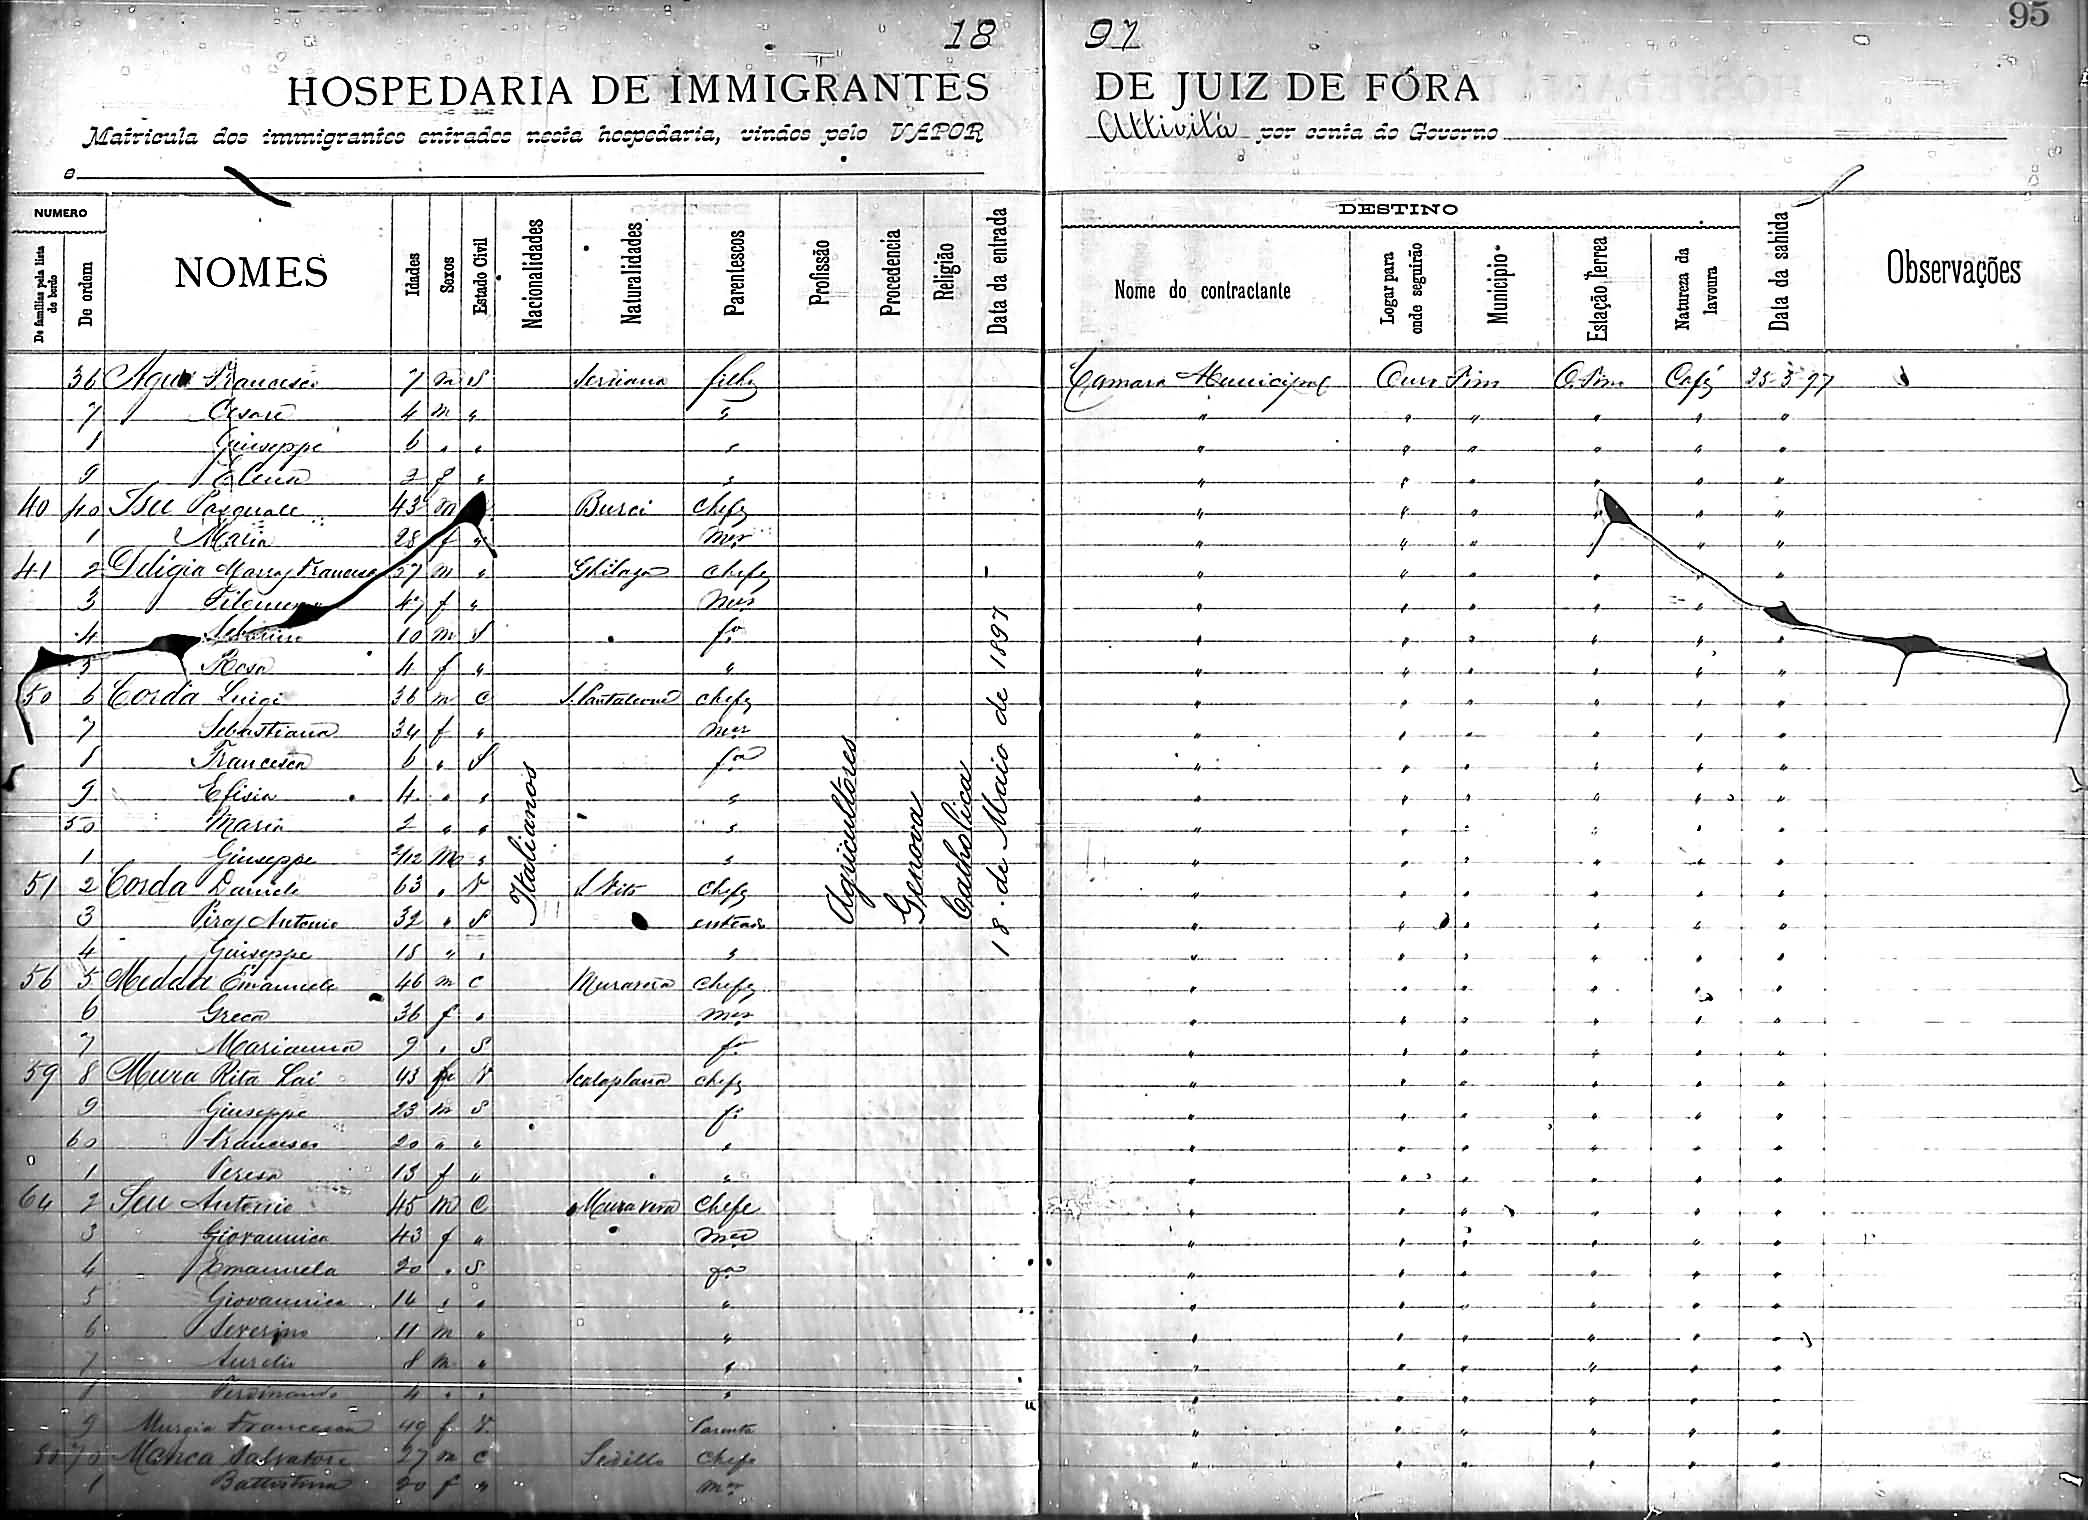 95
18 97
HOSPEDARIA DE IMMIGRANTES DE JUIZ DE FÓRA
Matricula dos immigrantes entrados nesta hospedaria, vindos pelo VAPOR Attivitá por conta do Governo
a
NUMERO
De familias pela lista de bordo
De ordem
NOMES
Idades
Sexos
Estado Civil
Nacionalidades
Naturalidades
Parentescos
Profissão
Procedencia
Religião
Data da entrada
DESTINO
Nome do contractante
Logar para onde seguirão
Municipio
Estação ferrea
Natureza da lavoura
Data da sahida
Observações
36 Francesco 7 m S filho Camara Municipal Ouro Fino O. Fino Café 25-5-97
7 Cesare 4 m " "
Giuseppe 6 " " "
9 Elena 2 f " "
40 40 Isu Pasquale 43 m Burei Chefe
1 Maria 28 f " Mer
41 2 Deligia Francesco 27 m " Ghilarza Chefe
3 Filomena 47 f " Mer
4 10 m S fo
5 Rosa 4 f " "
50 6 Corda Luigi 36 m C S. Pantaleone Chefe
7 Sebastiana 34 f " Mer
Francesca 6 " S fa
9 Efisia 4 " " "
50 Maria 2 " " "
1 Giuseppe 2/12 m " "
51 2 Corda Daniele 63 " V S. Vito Chefe
3 Piras Antonio 32 " S enteado
4 Giuseppe 18 " " "
56 5 Medda Emanuele 46 m C Muravera Chefe
6 Greca 36 f " mer
7 Marianna 9 " S fa
59 8 Mura Rita Lai 43 f V Scalaplana Chefe
9 Giuseppe 23 m S fo
60 Francesco 20 " " "
1 Teresa 13 f " "
64 2 Seu Antonio 45 m C Muravera Chefe
3 Giovannica 43 f " Mer
4 Emanuela 20 " S fa
5 Giovannica 14 " " "
6 Severino 11 m " "
7 Aurelio 8 m " "
Ferdinando 4 " " "
9 Murgia Francesca 49 f V. Parenta
70 Manca Salvatore 27 m C Sedillo Chefe
1 Battistina 20 f " mer
Italianos
Agricultores
Genova
Catholica
18 de Maio de 1897